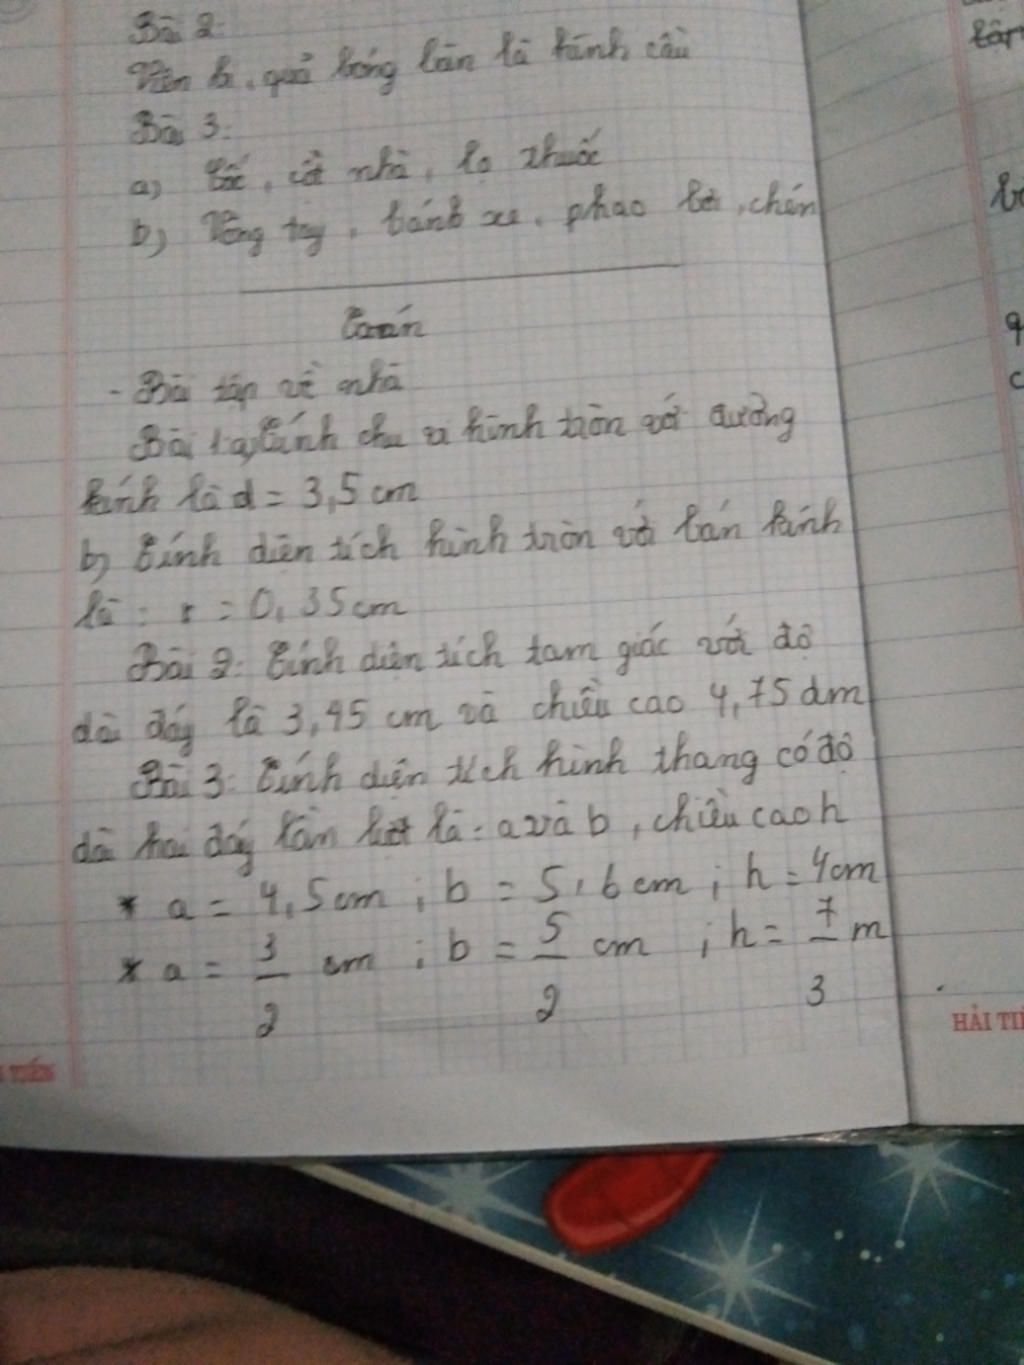 Bài 2:
Viên bi, quả bóng bàn là hình cầu
Bài 3:
a) cốc, cột nhà, lọ thuốc
b) Vòng tay, bánh xe, phao bơi, chén
Toán
- Bài tập về nhà
Bài 1. a) Tính chu vi hình tròn với đường
kính là d = 3,5 cm
b) Tính diện tích hình tròn với bán kính
là : r = 0,35 cm
Bài 2: Tính diện tích tam giác với độ
dài đáy là 3,45 cm và chiều cao 4,75 dm
Bài 3: Tính diện tích hình thang có độ
dài hai đáy lần lượt là: a và b, chiều cao h
* a = 4,5 cm ; b = 5,6 cm ; h = 4 cm
* a = 3/2 cm ; b = 5/2 cm ; h = 7/3 m
TIẾN
HẢI TI